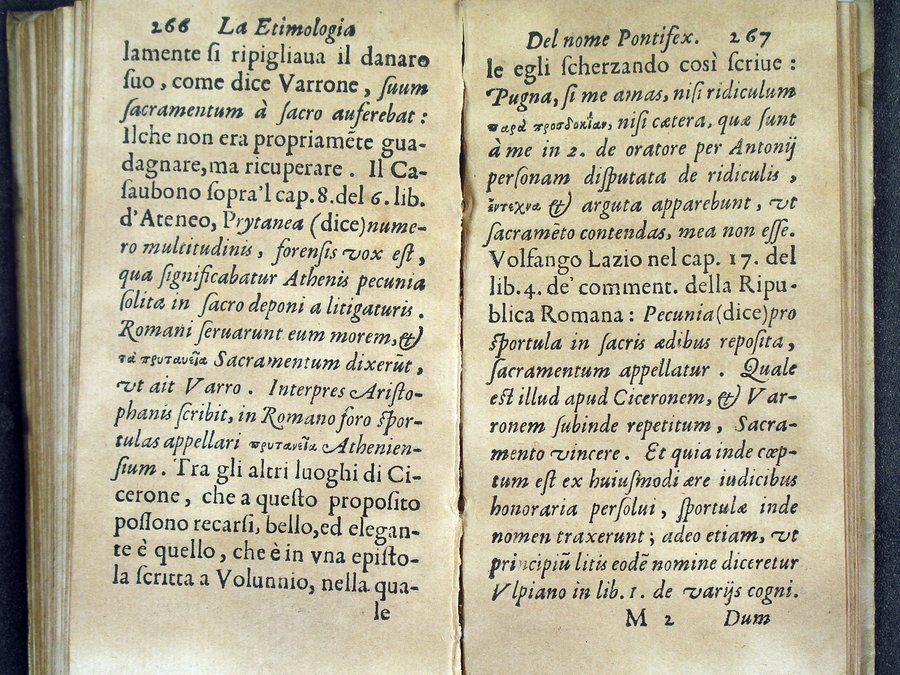 266 La Etimologia
lamente ſi ripigliaua il danaro
ſuo, come dice Varrone, ſuum
ſacramentum à ſacro auferebat:
Ilche non era propriamẽte gua-
dagnare, ma ricuperare. Il Ca-
ſaubono ſopra'l cap. 8. del 6. lib.
d'Ateneo, Prytanea (dice) nume-
ro multitudinis, forenſis vox eſt,
qua ſignificabatur Athenis pecunia
ſolita in ſacro deponi a litigaturis.
Romani ſeruarunt eum morem, &
τὰ πρυτανεῖα Sacramentum dixerũt,
vt ait Varro. Interpres Ariſto-
phanis ſcribit, in Romano foro ſpor-
tulas appellari πρυτανεῖα Athenien-
ſium. Tra gli altri luoghi di Ci-
cerone, che a queſto propoſito
poſſono recarſi, bello, ed elegan-
te è quello, che è in vna epiſto-
la ſcritta a Volunnio, nella qua-
le
Del nome Pontifex. 267
le egli ſcherzando così ſcriue:
Pugna, ſi me amas, niſi ridiculum
παρὰ προσδοκίαν, niſi cætera, quæ ſunt
à me in 2. de oratore per Antonij
perſonam diſputata de ridiculis,
ἔντεχνα & arguta apparebunt, vt
ſacramẽto contendas, mea non eſſe.
Volfango Lazio nel cap. 17. del
lib. 4. de' comment. della Ripu-
blica Romana: Pecunia (dice) pro
ſportula in ſacris ædibus repoſita,
ſacramentum appellatur. Quale
eſt illud apud Ciceronem, & Var-
ronem ſubinde repetitum, Sacra-
mento vincere. Et quia inde cœp-
tum eſt ex huiuſmodi ære iudicibus
honoraria perſolui, ſportulæ inde
nomen traxerunt; adeo etiam, vt
principiũ litis eodẽ nomine diceretur
Vlpiano in lib. 1. de varijs cogni.
M 2 Dum